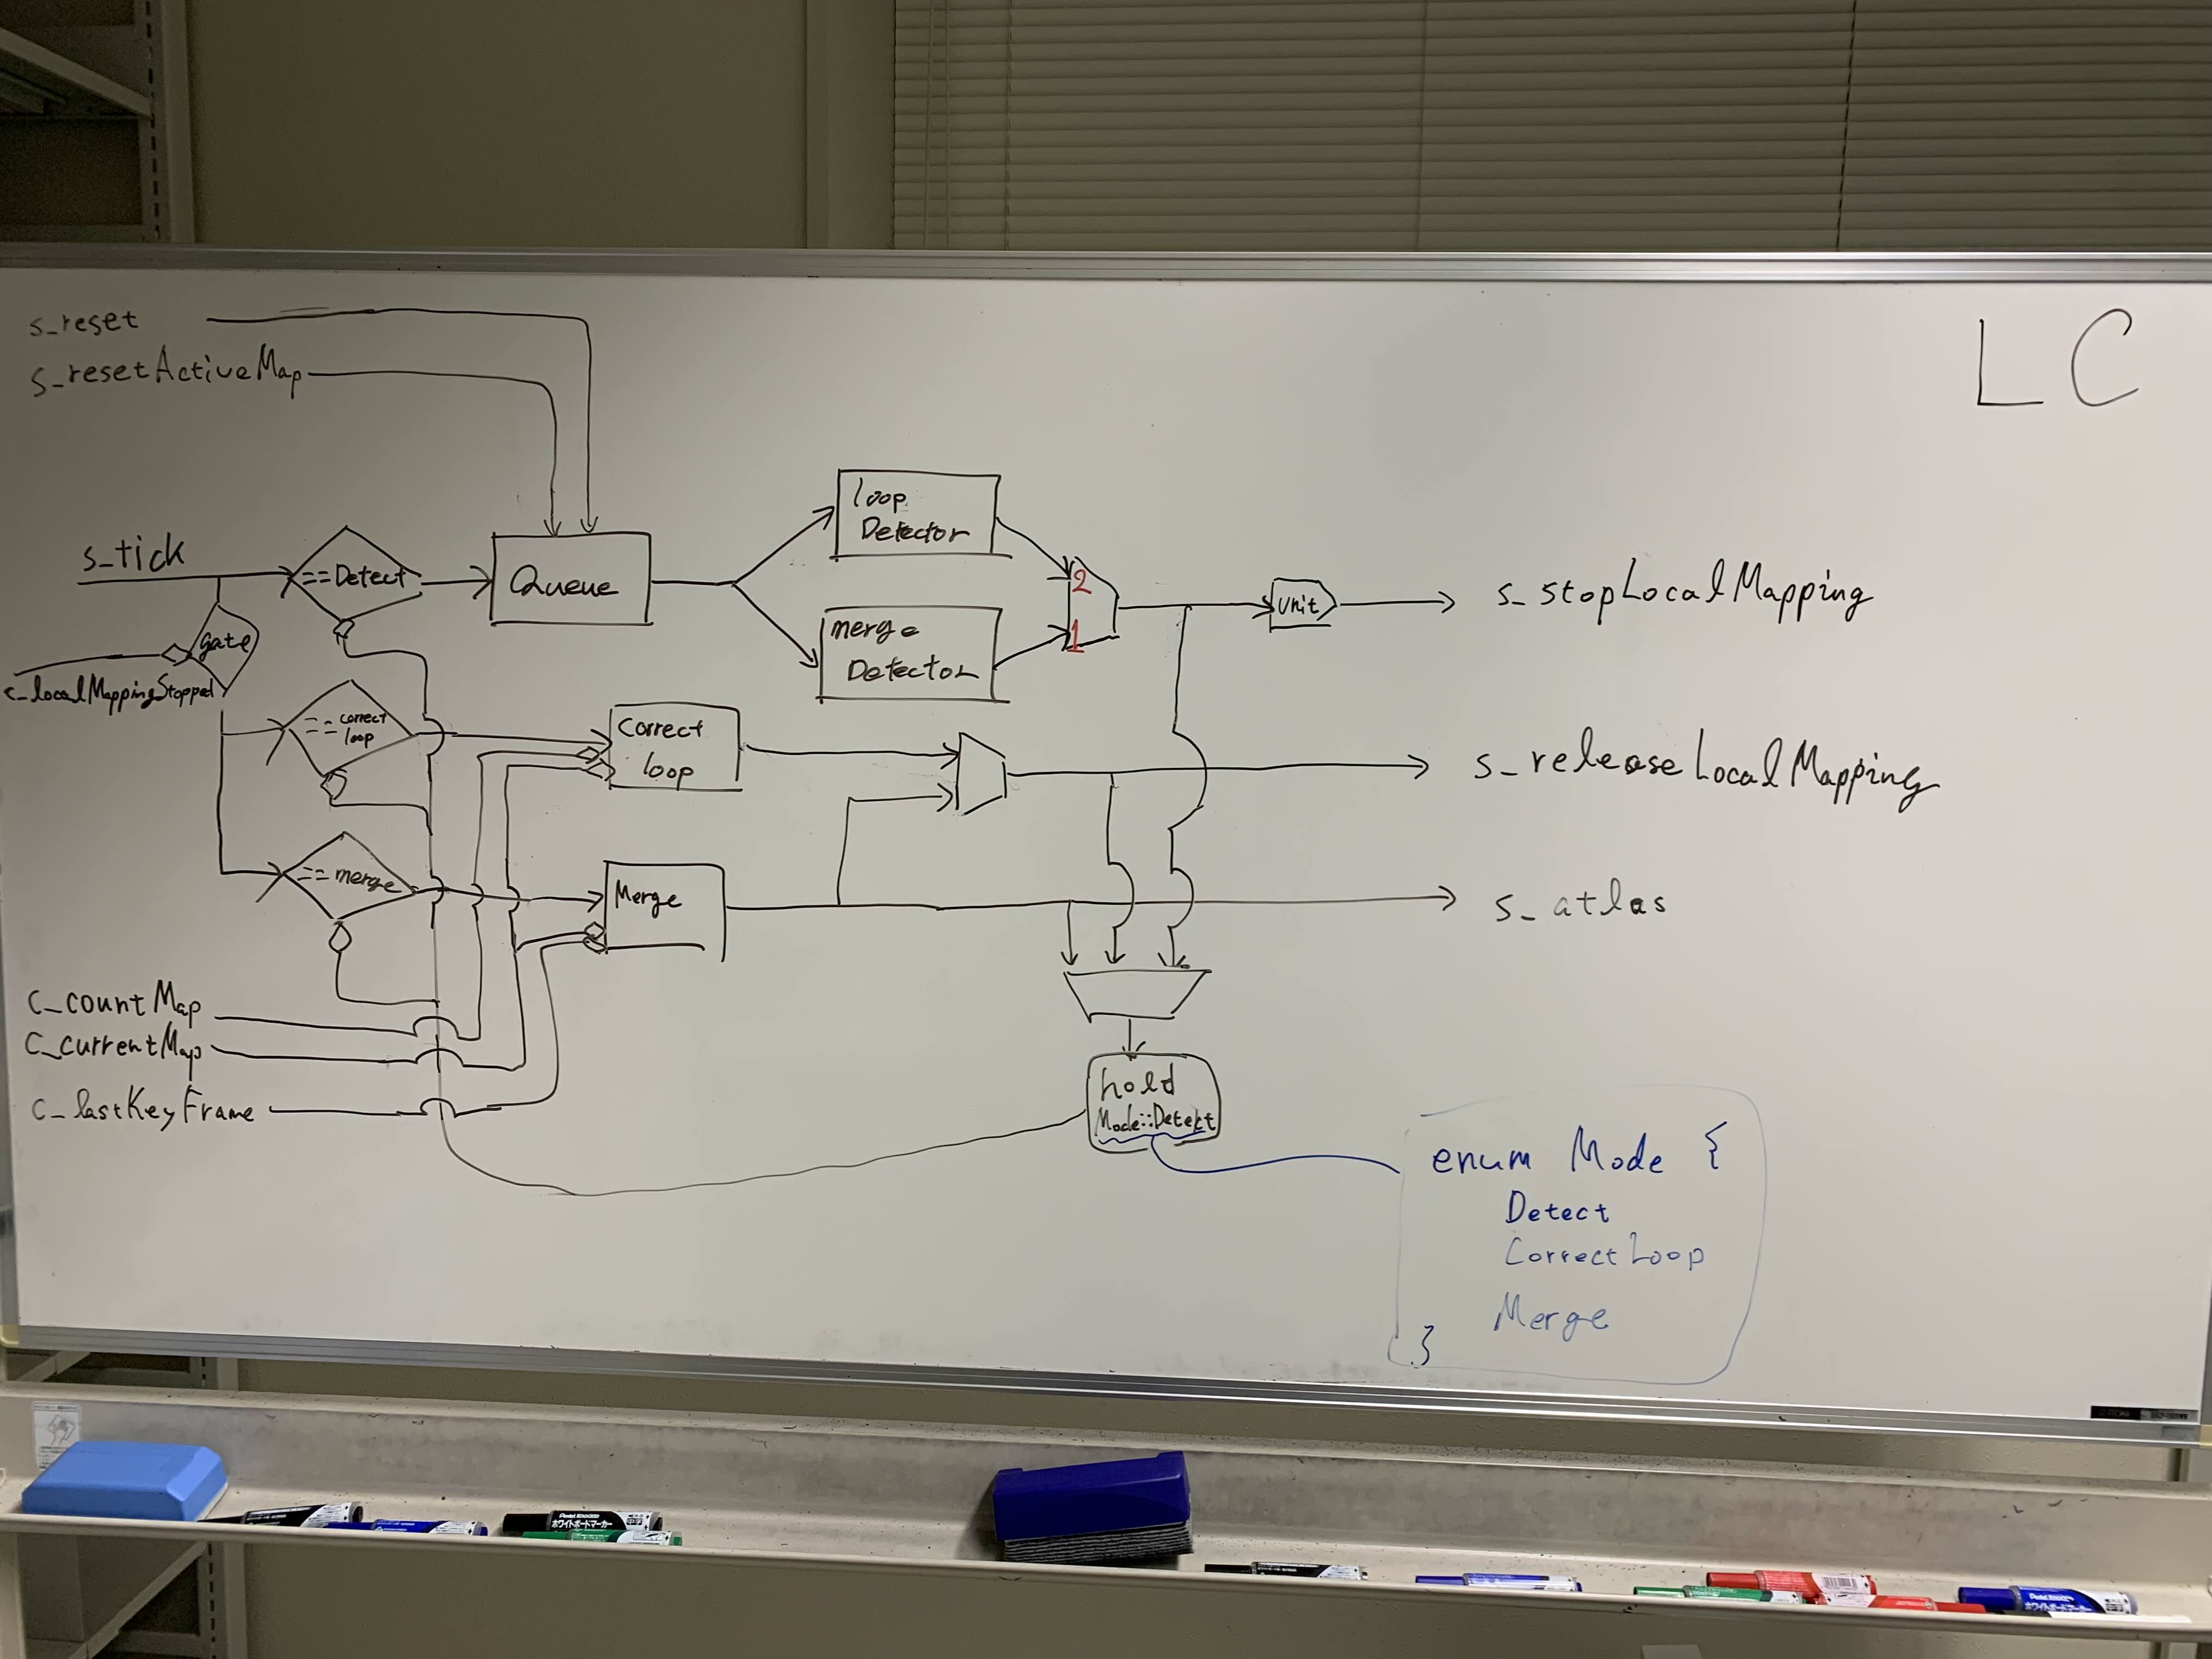 LC
s_reset
s_resetActiveMap
s_tick
==Detect
Queue
loop
Detector
merge
Detector
2
1
unit
s_stopLocalMapping
gate
c_localMappingStopped
==correct
loop
Correct
loop
s_releaseLocalMapping
==merge
Merge
s_atlas
c_countMap
c_currentMap
c_lastKeyFrame
hold
Mode::Detect
enum Mode {
Detect
CorrectLoop
Merge
}
ホワイトボードマーカー
ホワイトボードマーカー